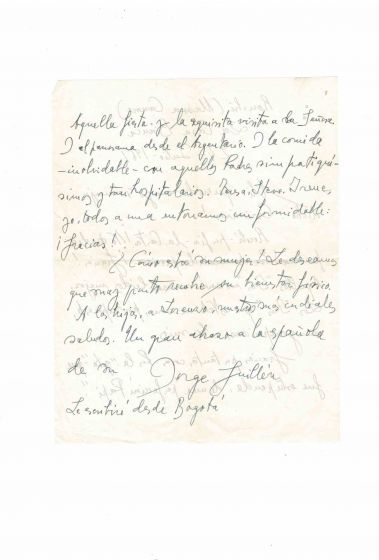 Aquella fiesta. y la exquisita visita a La
Y el panorama desde el Argentario. Y la comida
-inolvidable- con aquellos Padres simpatiquí-
simos y tan hospitalarios. Teresa, Steve, Irene,
yo, todos a una entonamos un formidable:
¡Gracias!
¿Cómo está su mujer? Le deseamos
que muy pronto recobre su bienestar físico.
A los hijos, a Lorenzo, nuestros más cordiales
saludos. Un gran abrazo a la española
de su Jorge Guillén
Le escribiré desde Bogotá